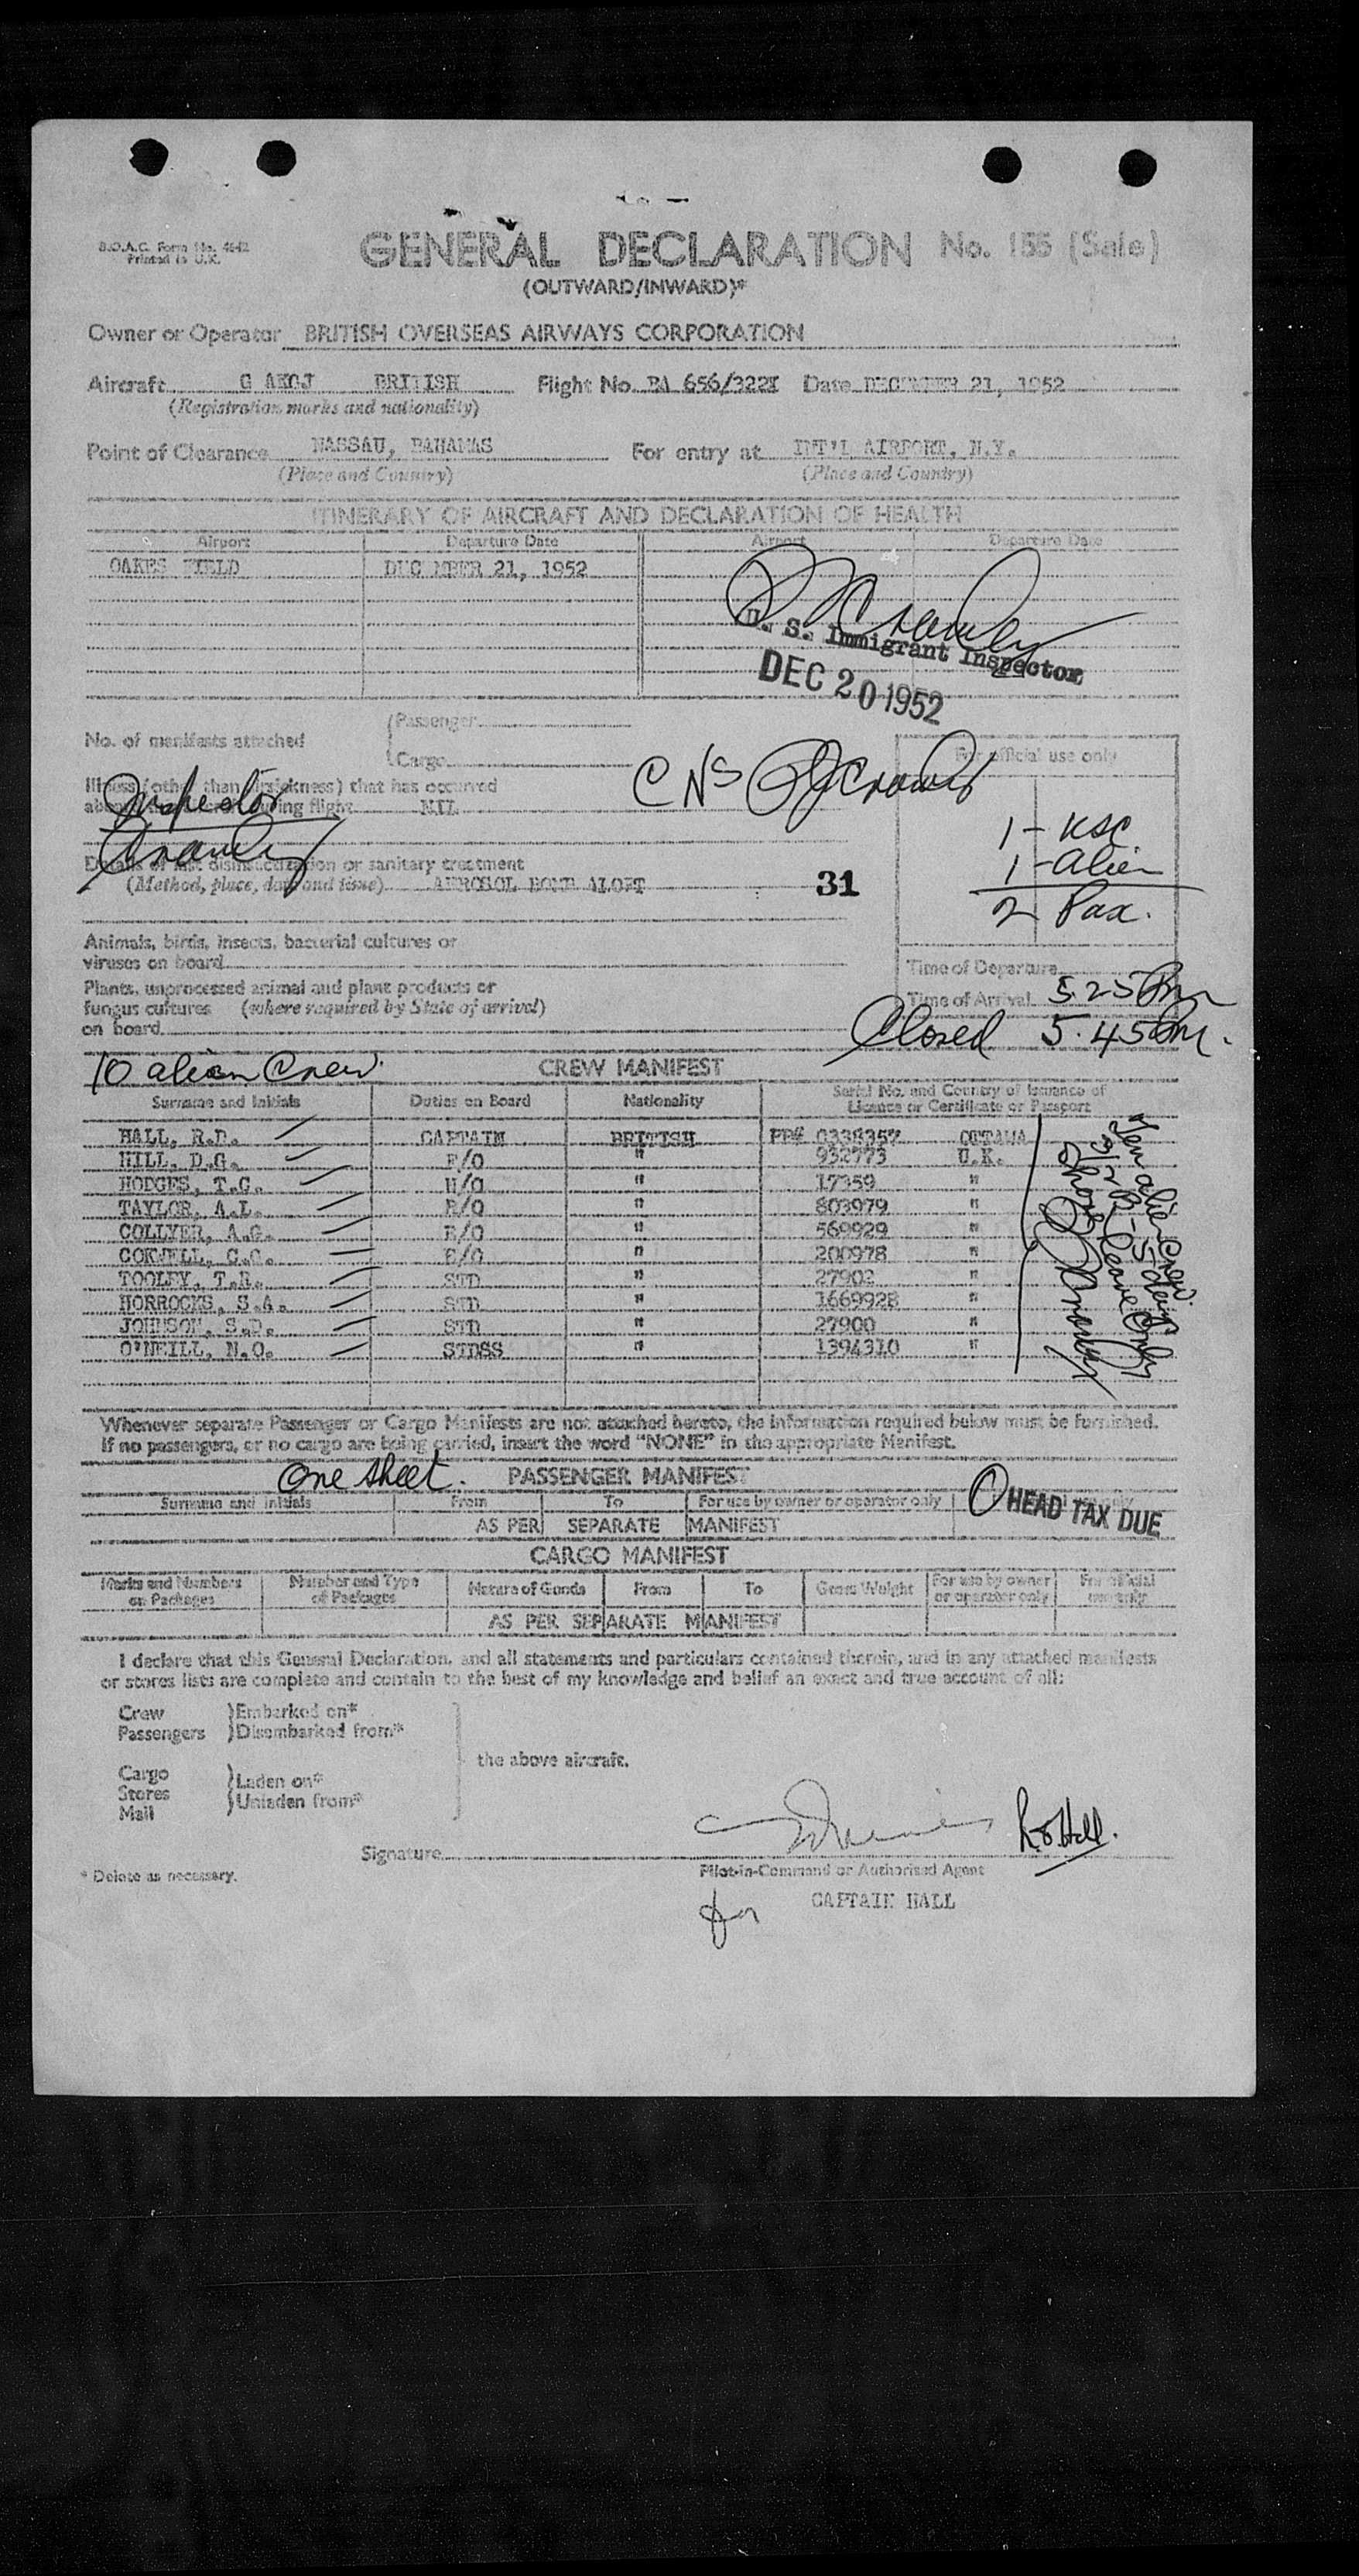 B.O.A.C. Form No. 4642
Printed in U.K.
GENERAL DECLARATION No. 155 (Sale)
(OUTWARD/INWARD)*
Owner or Operator BRITISH OVERSEAS AIRWAYS CORPORATION
Aircraft G AKOJ BRITISH Flight No. BA 656/322X Date DECEMBER 21, 1952
(Registration marks and nationality)
Point of Clearance NASSAU, BAHAMAS For entry at INT'L AIRPORT, N.Y.
(Place and Country) (Place and Country)
ITINERARY OF AIRCRAFT AND DECLARATION OF HEALTH
Airport Departure Date Airport Departure Date
OAKES FIELD DEC MBER 21, 1952
U. S. Immigrant Inspector
DEC 20 1952
No. of manifests attached
Passenger
Cargo
For official use only
Illness (other than airsickness) that has occurred
during flight NIL
Inspector
1 - USC
1 - alien
2 Pax.
Details of last disinsectization or sanitary treatment
(Method, place, date and issue) AEROSOL BOMB ALOFT 31
Animals, birds, insects, bacterial cultures or
viruses on board
Time of Departure
Plants, unprocessed animal and plant products or
fungus cultures (where required by State of arrival)
on board
Time of Arrival 5.25 Pm
Closed 5.45 Pm.
10 alien Crew.
CREW MANIFEST
Surname and Initials Duties on Board Nationality Serial No. and Country of Issuance of
Licence or Certificate or Passport
HALL, R.D. CAPTAIN BRITISH PP# 0338357 OTTAWA
HILL, D.G. F/O " 932773 U.K.
HODGES, T.C. N/O " 17359 "
TAYLOR, A.L. R/O " 803979 "
COLLYER, A.G. E/O " 569929 "
CORNELL, C.C. E/O " 200978 "
TOOLEY, T.R. STD " 27902 "
HORROCKS, S.A. STD " 1669928 "
JOHNSON, S.D. STD " 27900 "
O'NEILL, N.O. STDSS " 1394310 "
Ten alien Crew.
Whenever separate Passenger or Cargo Manifests are not attached hereto, the information required below must be furnished.
If no passengers, or no cargo are being carried, insert the word "NONE" in the appropriate Manifest.
One sheet.
PASSENGER MANIFEST
Surname and initials From To For use by owner or operator only
0 HEAD TAX DUE
AS PER SEPARATE MANIFEST
CARGO MANIFEST
Marks and Numbers on Packages Number and Type of Packages Nature of Goods From To Gross Weight For use by owner or operator only For official use only
AS PER SEPARATE MANIFEST
I declare that this General Declaration, and all statements and particulars contained therein, and in any attached manifests
or stores lists are complete and contain to the best of my knowledge and belief an exact and true account of all:
Crew
Passengers
Embarked on*
Disembarked from*
the above aircraft.
Cargo
Stores
Mail
Laden on*
Unladen from*
R.D. Hall.
Signature
* Delete as necessary.
Pilot-in-Command or Authorised Agent
for CAPTAIN HALL